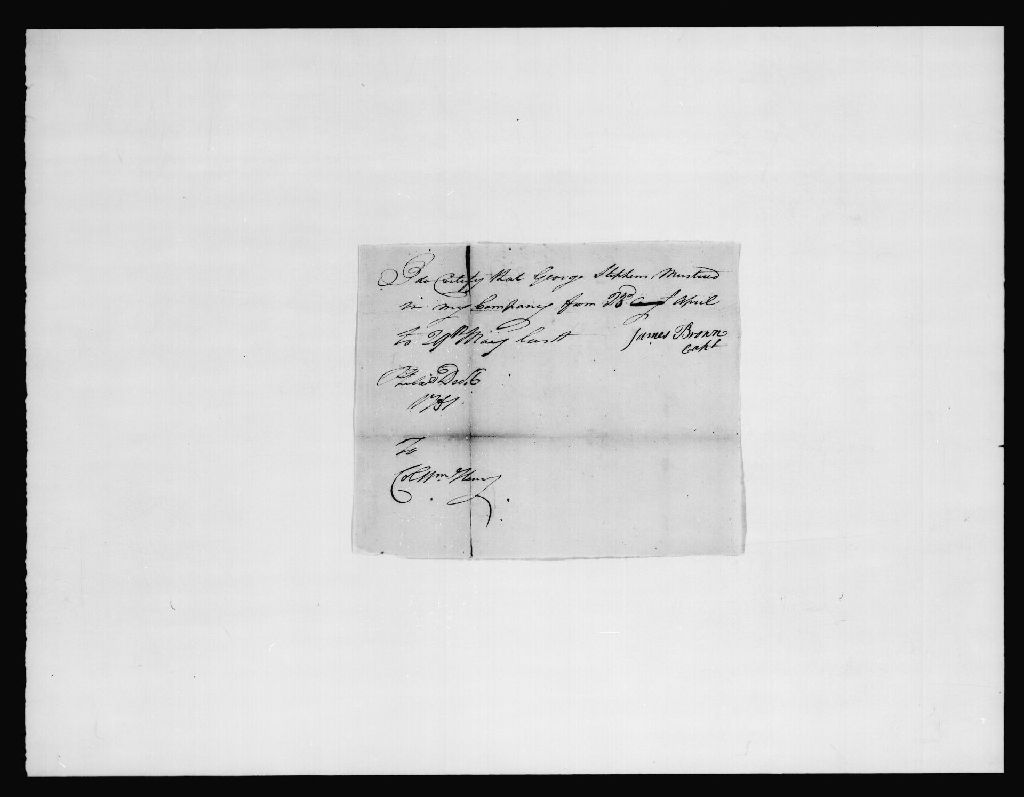 I do Certify that George Stephens Mustered
in my Company from 23rd of April
to 29th May last
James Brown
Capt
Philad Dec 6
1781
To
Col Wm Henry